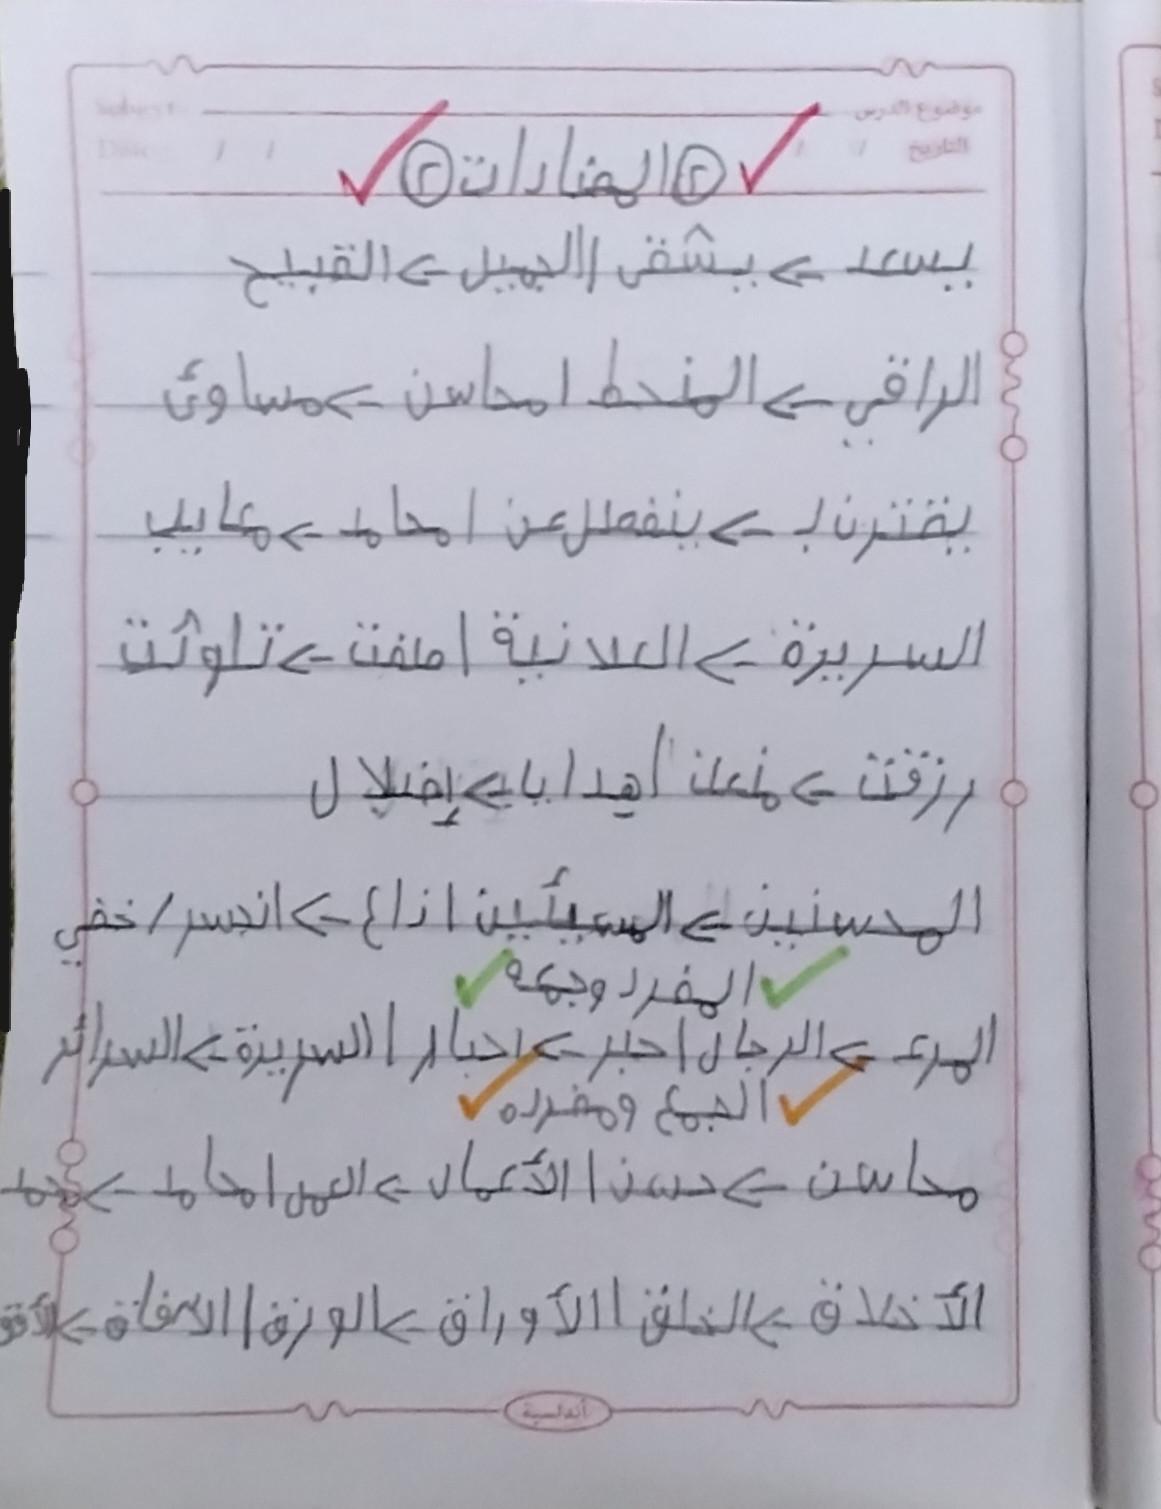 Subject موضوع الدرس
Date / / / / التاريخ
② المضادات ②
يسعد -> يشقى | الجميل -> القبيح
الراقي -> المنحط | محاسن -> مساوئ
يقترن بـ -> ينفصل عن | محامد -> معايب
السريرة -> العلانية | صفت -> تلوثت
رزقت -> منعت | هدايا -> إضلال
المحسنين -> المسيئين | ذاع -> انحسر / خفي
المفرد وجمعه
المرء -> الرجال | حبر -> احبار | السريرة -> السرائر
الجمع ومفرده
محاسن -> حسن | الأعمال -> العمل | محامد ->
الأخلاق -> الخلق | الأوراق -> الورق | الآفاق -> الأفق
أندلسية